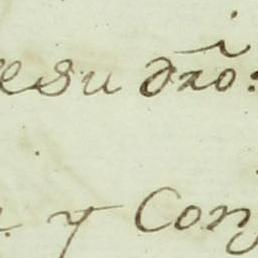 esu dr̃o:
y Con